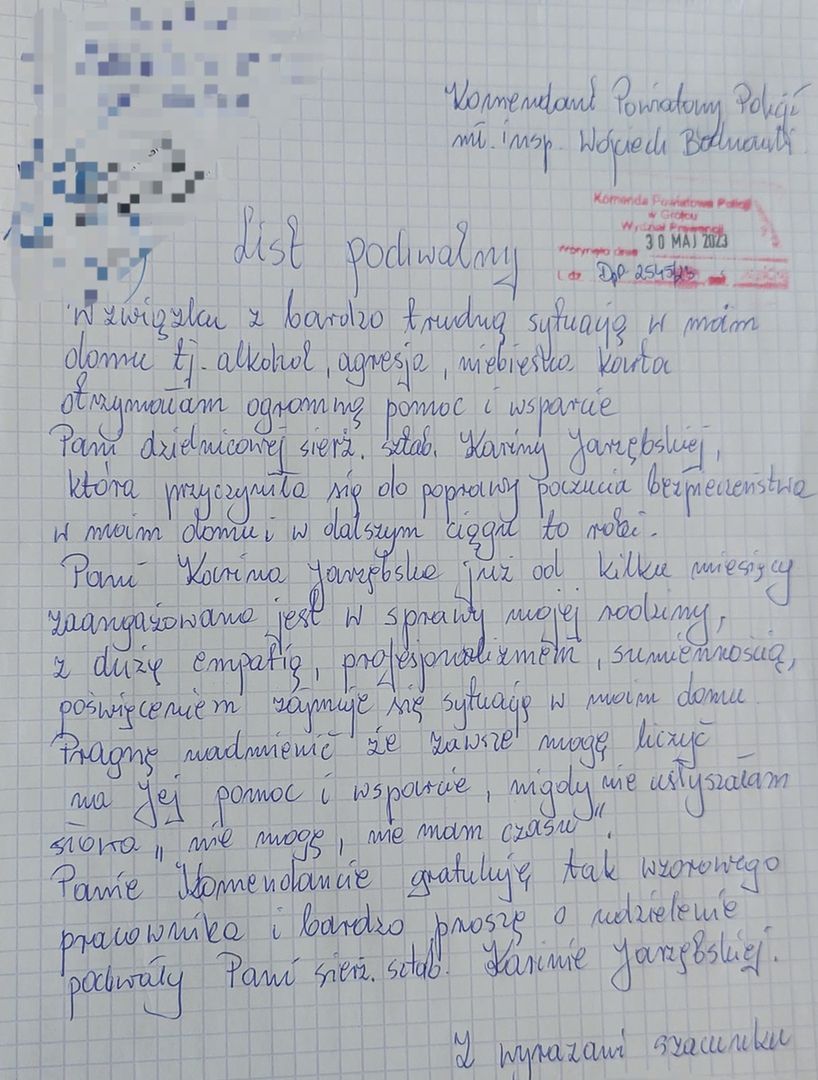 Komendant Powiatowy Policji
mł. insp. Wojciech Bednarski
Komenda Powiatowa Policji
w Grójcu
Wydział Prewencji
Wpłynęło dnia 30 MAJ 2023
L. dz. DpP 2545/23
List pochwalny
W związku z bardzo trudną sytuacją w moim
domu tj. alkohol, agresja, niebieska karta
otrzymałam ogromną pomoc i wsparcie
Pani dzielnicowej sierż. sztab. Kariny Jarzębskiej,
która przyczyniła się do poprawy poczucia bezpieczeństwa
w moim domu i w dalszym ciągu to robi.
Pani Karina Jarzębska już od kilku miesięcy
zaangażowana jest w sprawy mojej rodziny,
z dużą empatią, profesjonalizmem, sumiennością,
poświęceniem zajmuje się sytuacją w moim domu.
Pragnę nadmienić że zawsze mogę liczyć
na Jej pomoc i wsparcie, nigdy nie usłyszałam
słowa „nie mogę, nie mam czasu".
Panie Komendancie gratuluję tak wzorowego
pracownika i bardzo proszę o udzielenie
pochwały Pani sierż. sztab. Karinie Jarzębskiej.
Z wyrazami szacunku